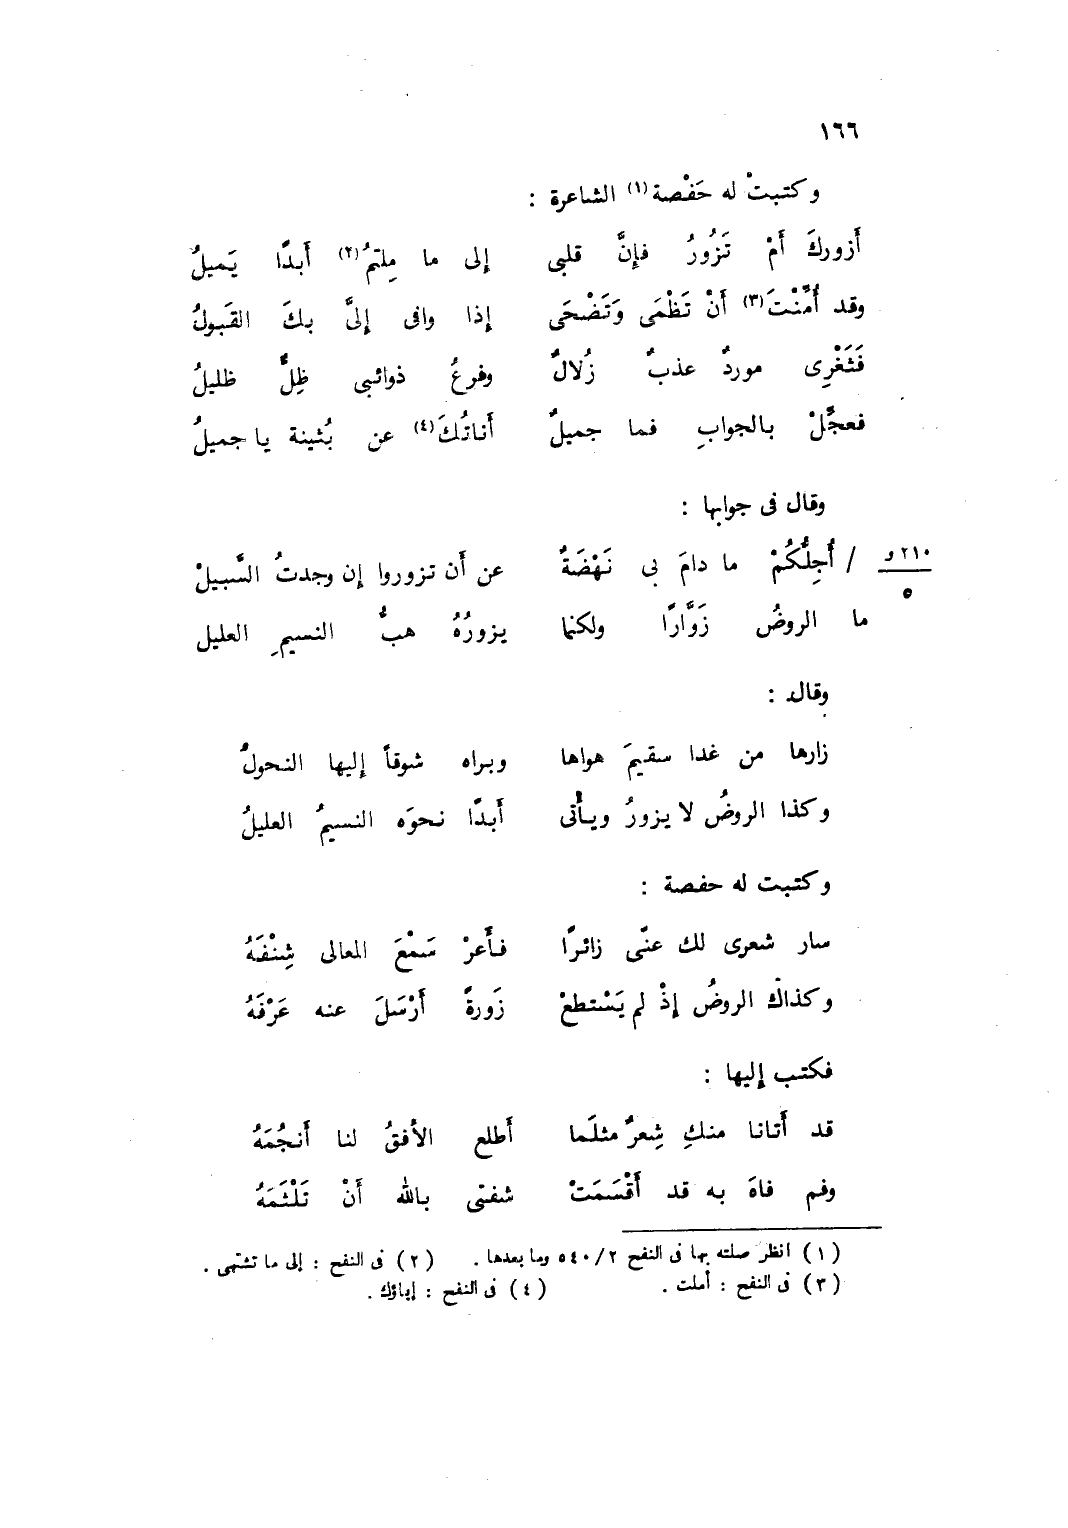 ١٦٦
وكتبتْ له حَفْصة(١) الشاعرة :
أَزوركَ أَمْ تَزُورُ فإنَّ قلبى إلى ما مِلتمُ(٢) أَبدًا يَميلُ
وقد أُمِّنْتَ(٣) أَنْ تَظْمَى وَتَضْحَى إذا وافى إلىَّ بكَ القَبولُ
فَثَغْرِى موردٌ عذبٌ زُلالٌ وفرعُ ذوائبى ظِلٌّ ظليلُ
فعجِّلْ بالجوابِ فما جميلٌ أَناتُكَ(٤) عن بُثينة يا جميلُ
وقال فى جوابها :
٢١٠ و / أُجِلُّكُمْ ما دامَ بى نَهْضَةٌ عن أَن تزوروا إن وجدتُ السَّبيلْ
٥
ما الروضُ زَوَّارًا ولكنما يزورُهُ هبُّ النسيمِ العليل
وقال :
زارها من غدا سقيمَ هواها وبراه شوقاً إليها النحولُ
وكذا الروضُ لا يزورُ ويأتى أَبدًا نحوَه النسيمُ العليلُ
وكتبت له حفصة :
سار شعرى لك عنّى زائرًا فأَعرْ سَمْعَ المعالى شِنْفَهُ
وكذاك الروضُ إذْ لم يَسْتطعْ زَورةً أَرْسَلَ عنه عَرْفَهُ
فكتب إليها :
قد أَتانا منكِ شِعرٌ مثلَما أَطلع الأُفقُ لنا أَنجُمَهُ
وفم فاهَ به قد أَقْسَمَتْ شفتى بالله أَنْ تَلْثَمَهُ
(١) انظر صلته بها فى النفح ٥٤٠/٢ وما بعدها . (٢) فى النفح : إلى ما تشتهى .
(٣) فى النفح : أملت . (٤) فى النفح : إباؤك .